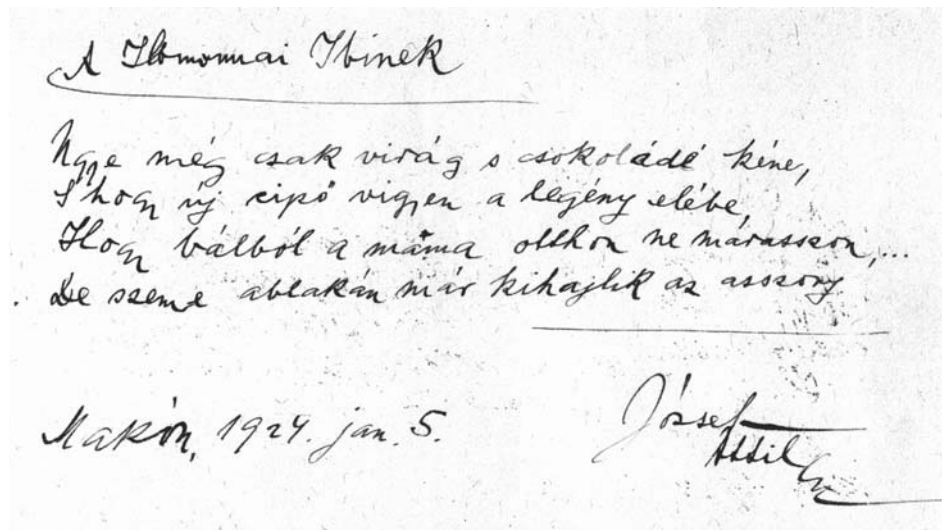 A Homonnai Ibinek
Ugye még csak virág s csokoládé kéne,
S hogy új cipő vigyen a legény elébe,
Hogy bálból a máma otthon ne marasszon,...
De szeme ablakán már kihajlik az asszony
Makón, 1924. jan. 5.
József
Attila